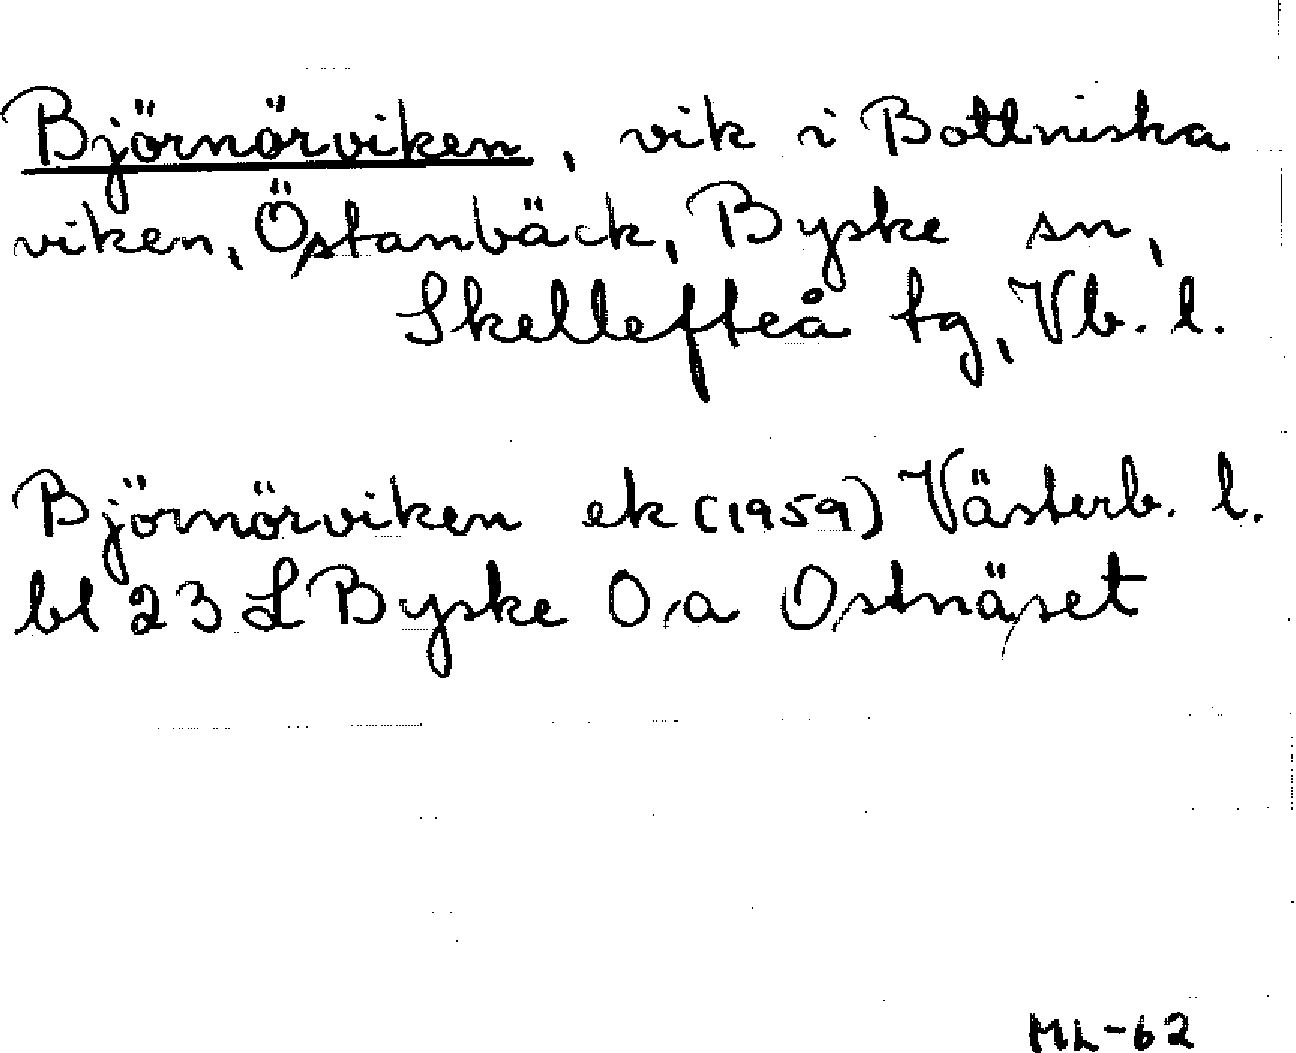 Björnörviken, vik i Bottniska
viken, Östanbäck, Byske sn,
Skellefteå tg, Vb. l.
Björnörviken ek (1959) Västerb. l.
bl 23 L Byske O,a Ostnäset
ML-62